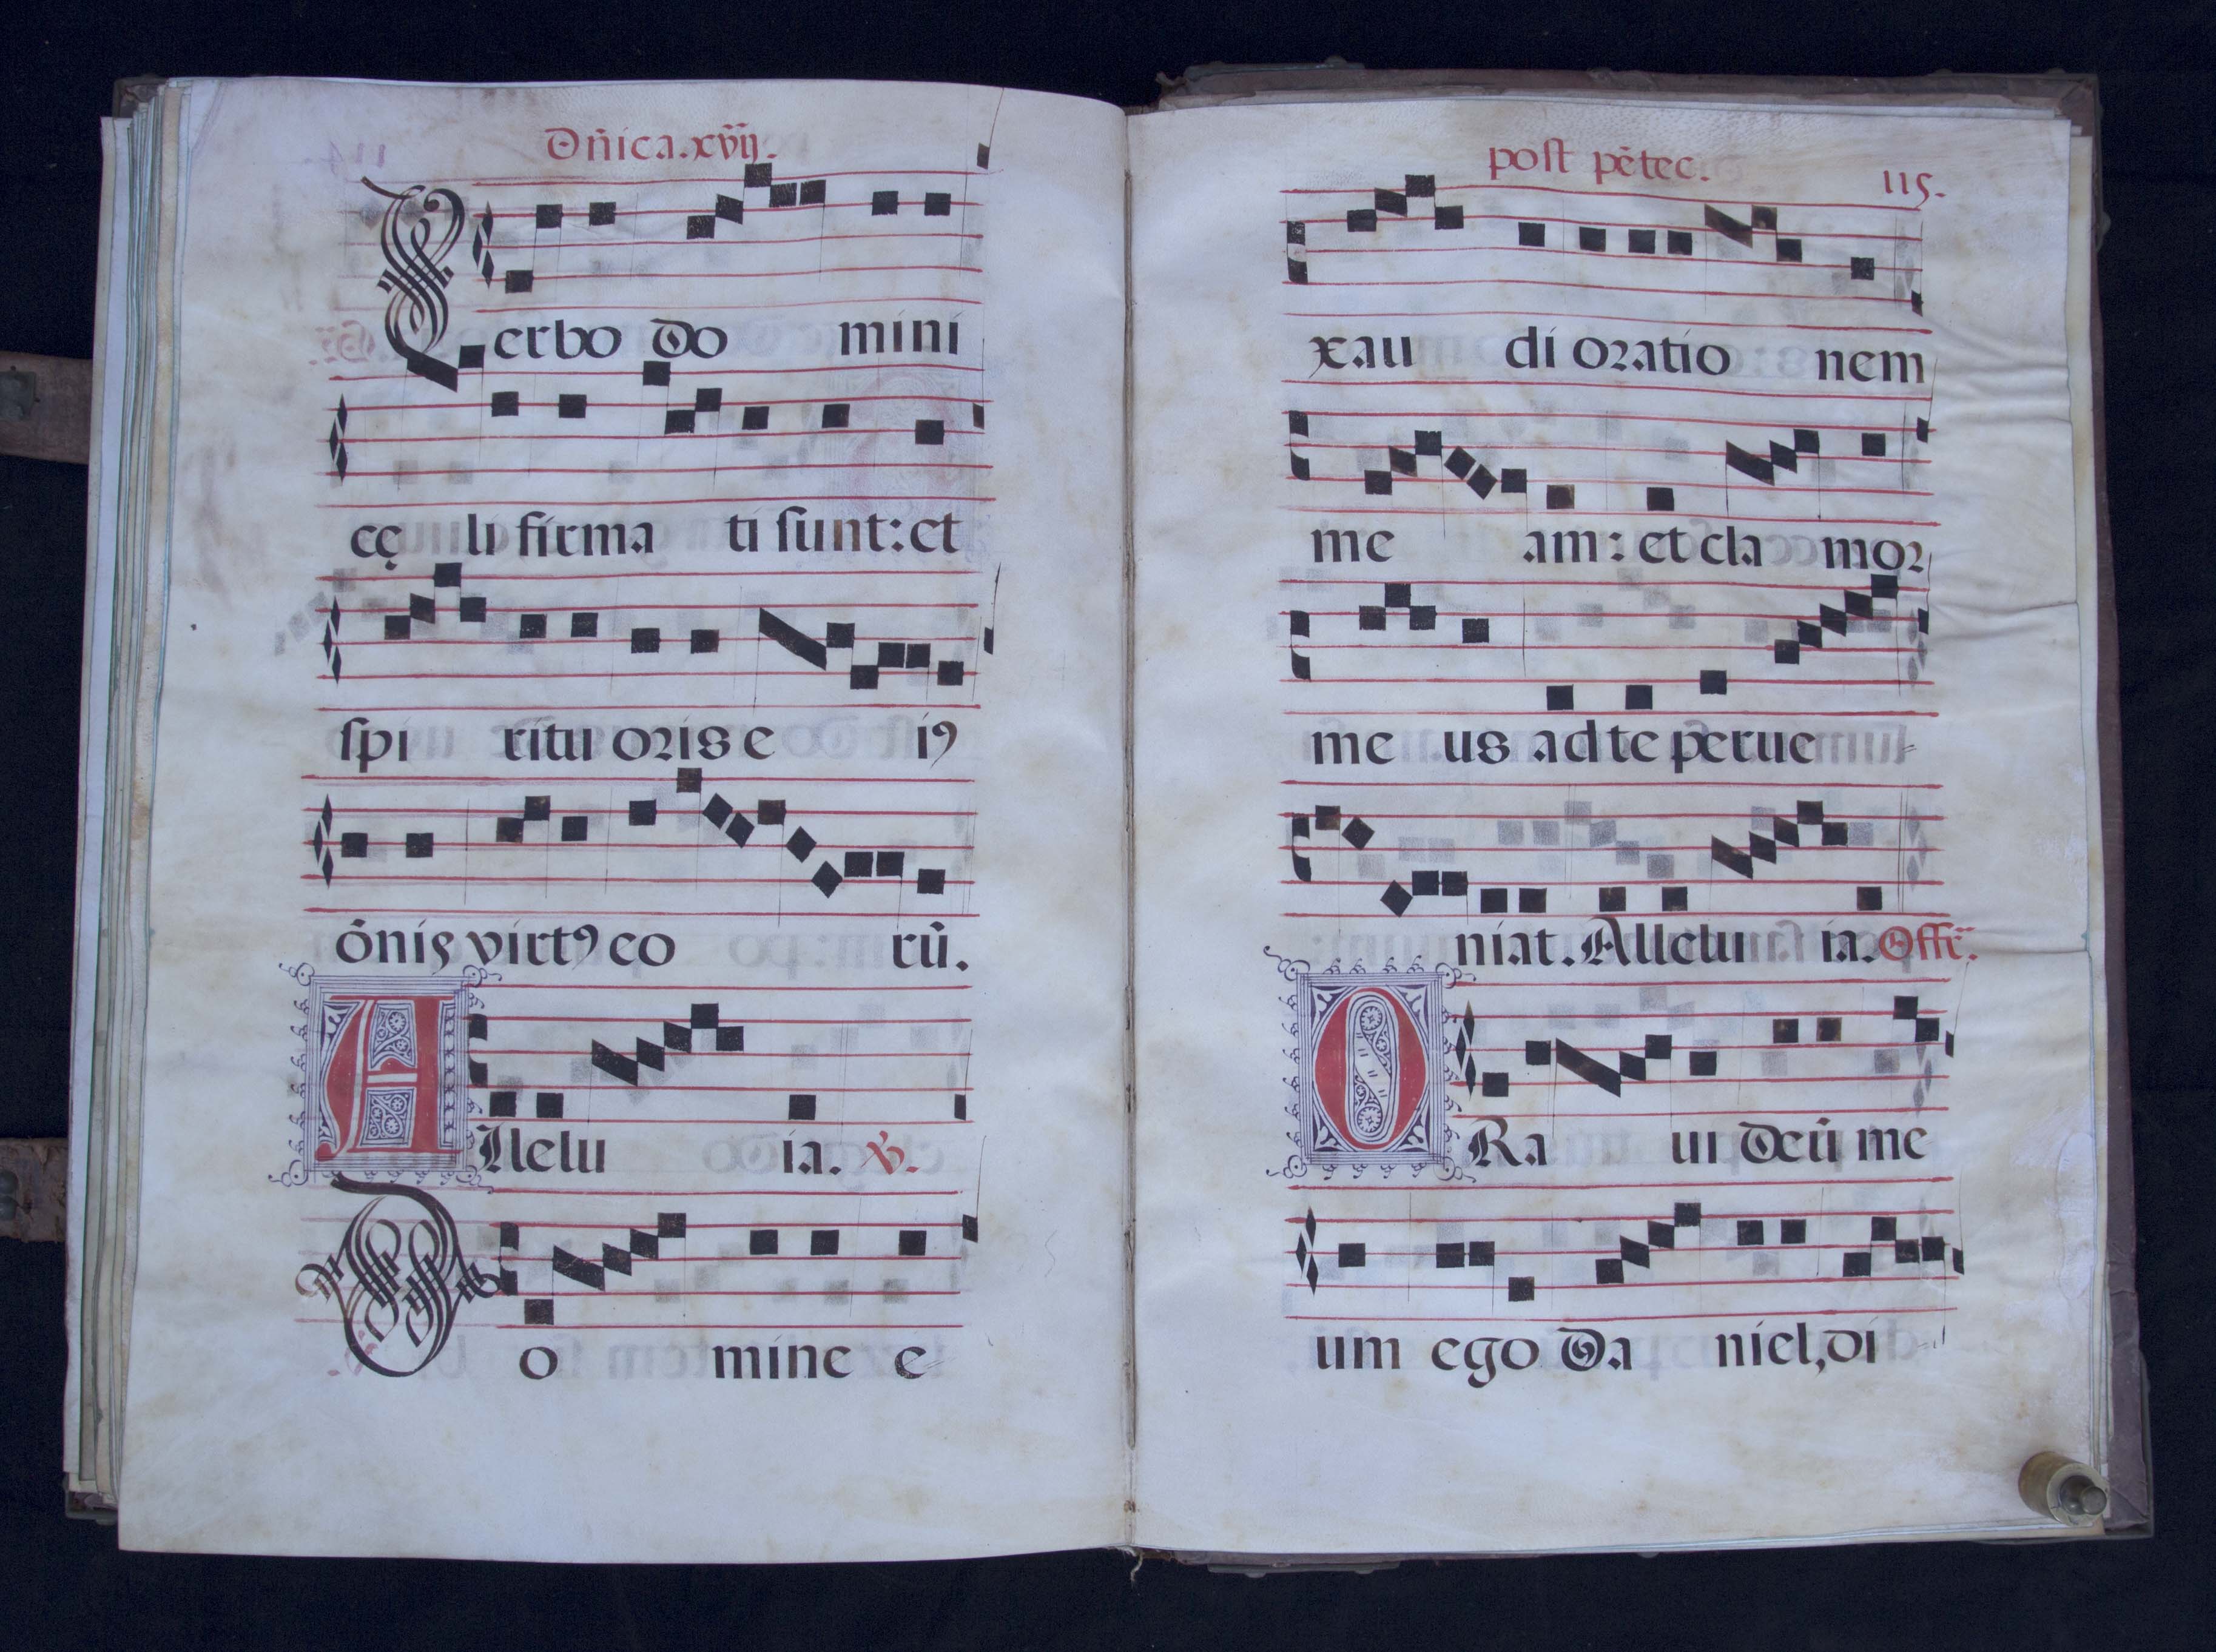 Dñica.xvij.
Verbo do mini
cę li firma ti sunt: et
spi ritu oris e iꝯ
õnis virtꝯ eo rũ.
Allelu ia. ℣.
Domine e
post pẽtec.
115.
xau di oratio nem
me am: et cla mor
me us ad te perue
niat. Allelu ia. Offr̃.
ORa ui deũ me
um ego Da niel, di